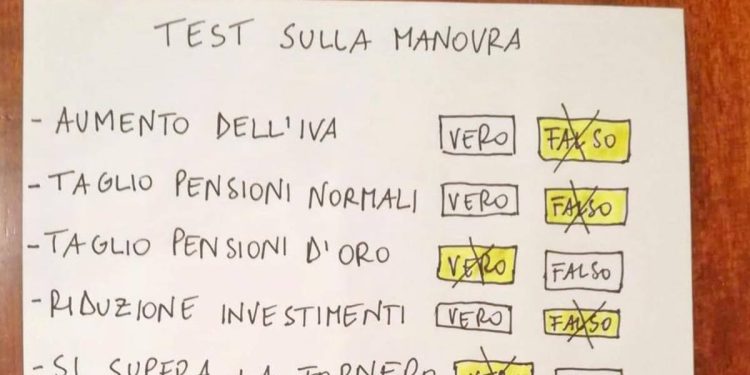 TEST SULLA MANOVRA
- AUMENTO DELL'IVA VERO FALSO
- TAGLIO PENSIONI NORMALI VERO FALSO
- TAGLIO PENSIONI D'ORO VERO FALSO
- RIDUZIONE INVESTIMENTI VERO FALSO
- SI SUPERA LA FORNERO VERO